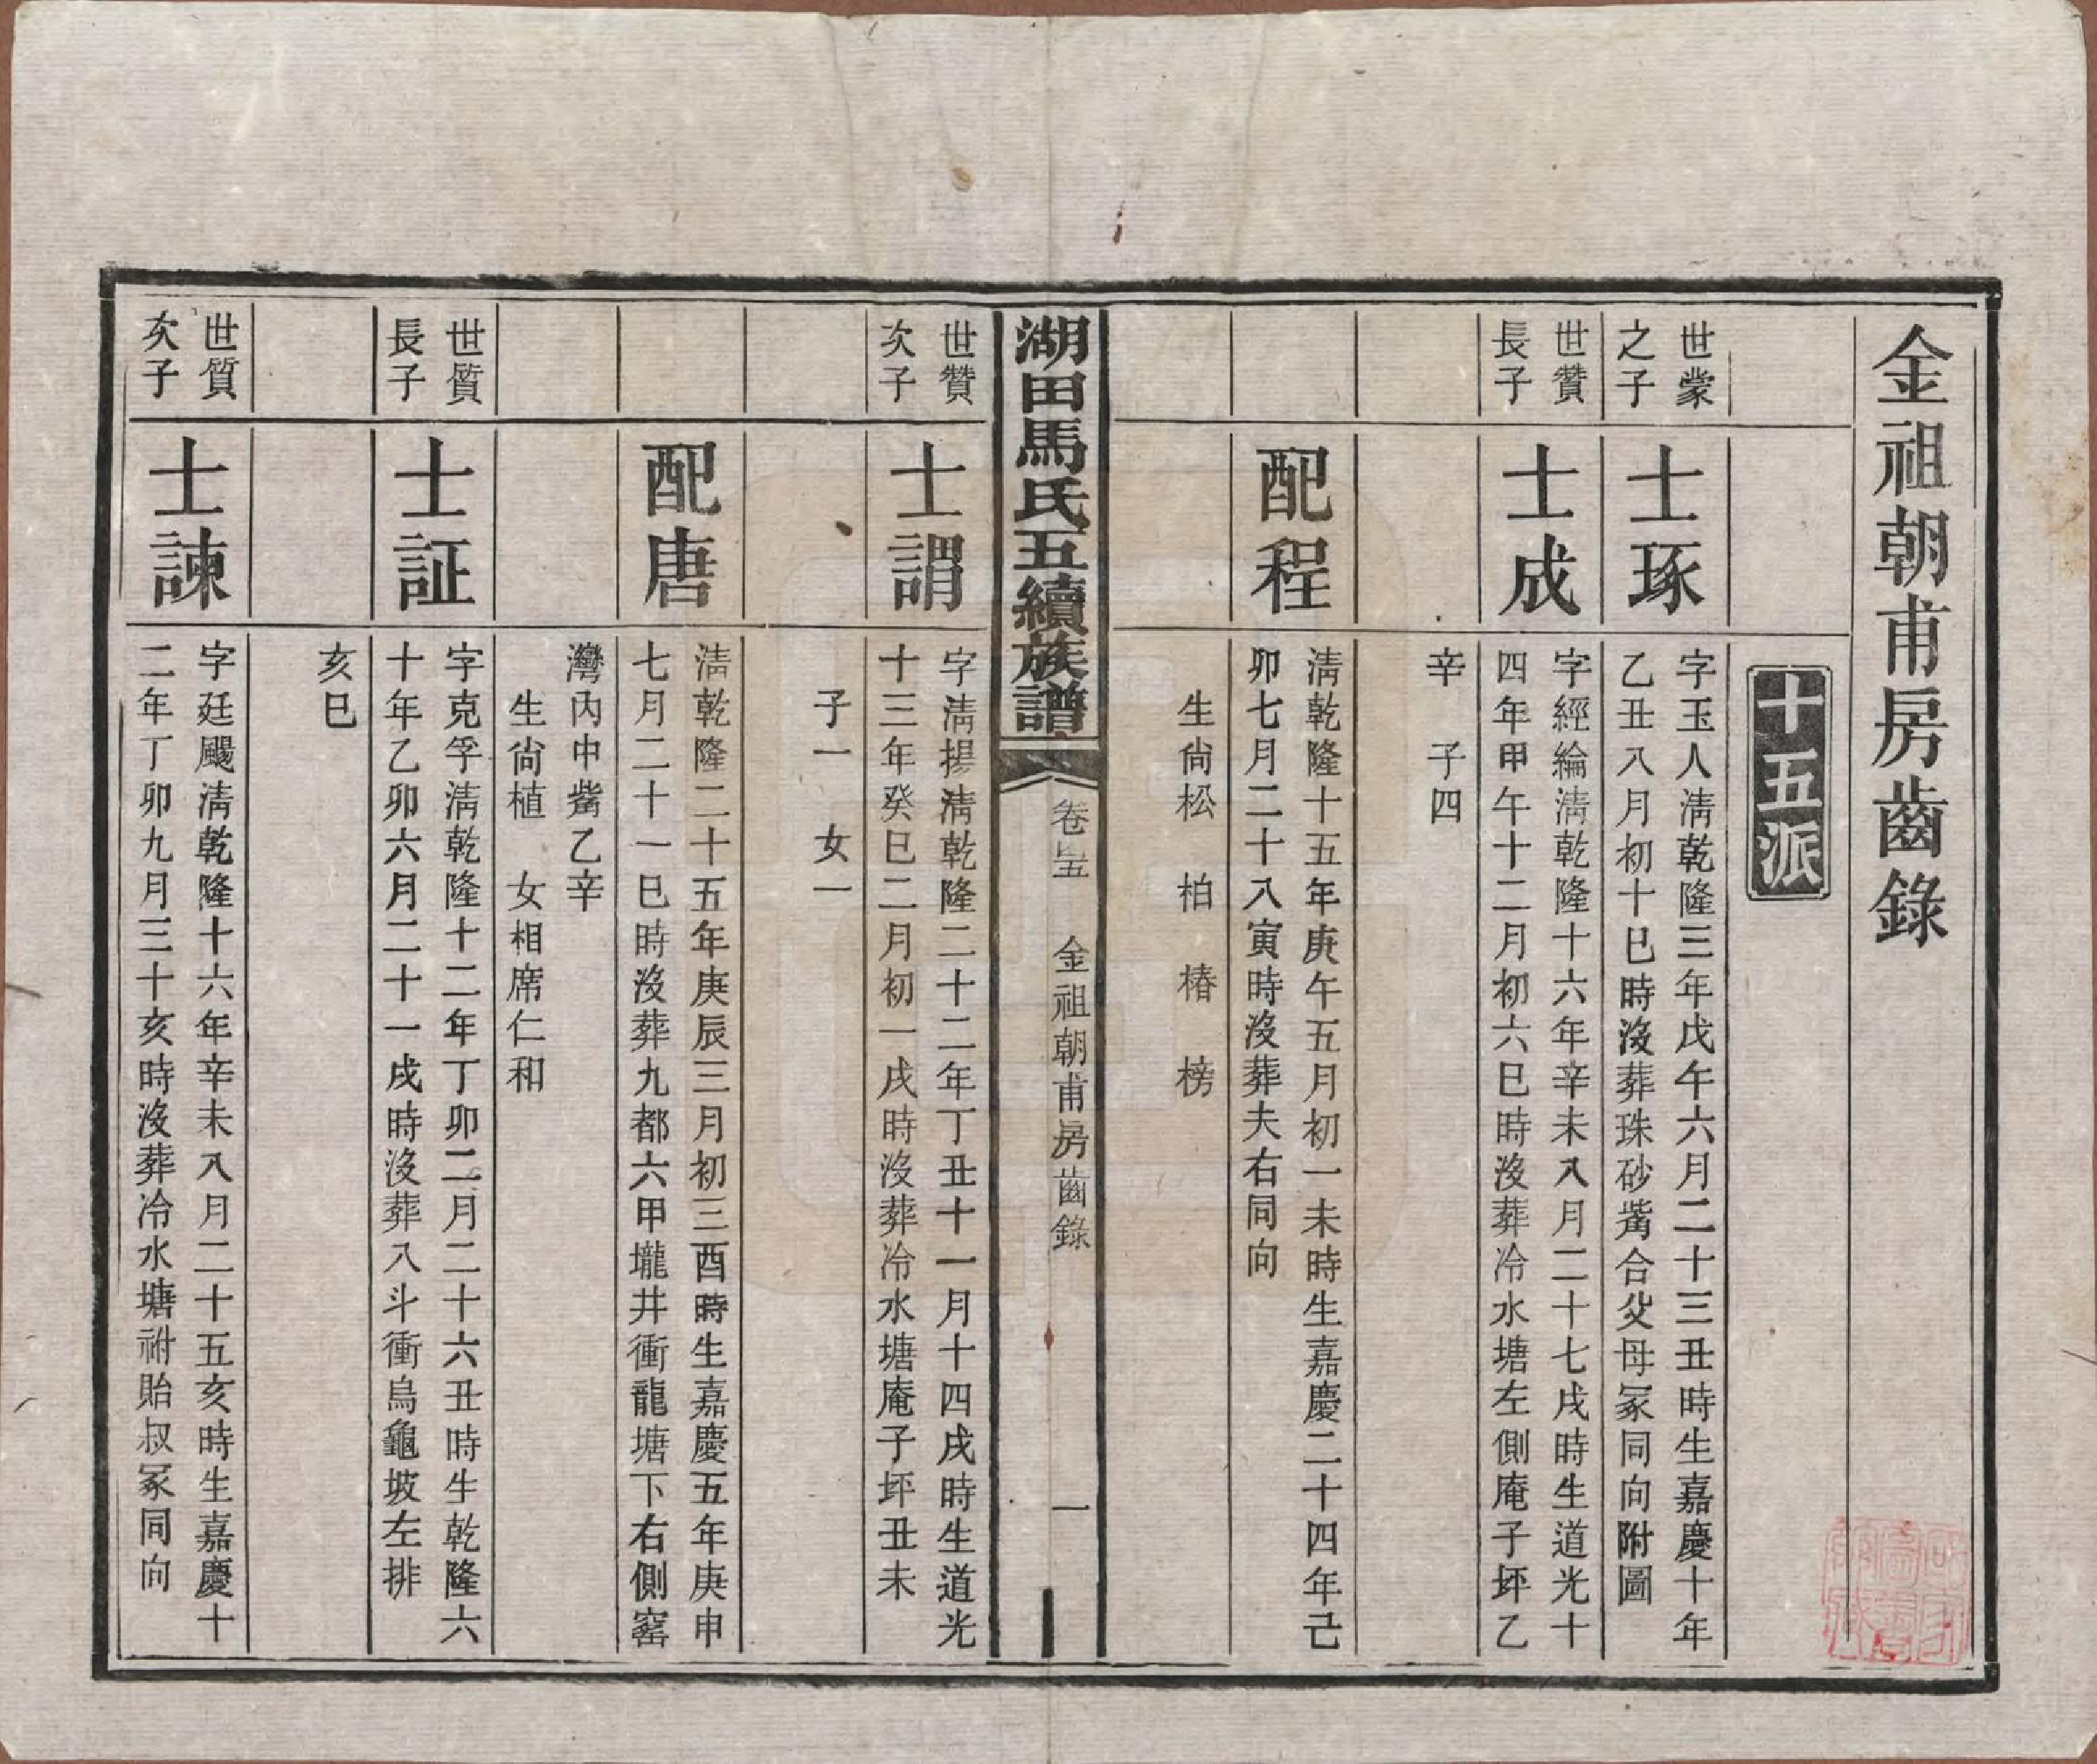 金祖朝甫房齒錄
十五派
世蒙
之子
士琢
字玉人淸乾隆三年戊午六月二十三丑時生嘉慶十年
乙丑八月初十巳時沒葬珠砂嘴合父母冢同向附圖
世贊
長子
士成
字經綸淸乾隆十六年辛未八月二十七戌時生道光十
四年甲午十二月初六巳時沒葬冷水塘左側庵子坪乙
辛　子四
配程
淸乾隆十五年庚午五月初一未時生嘉慶二十四年己
卯七月二十八寅時沒葬夫右同向
生尙松　柏　椿　榜
湖田馬氏五續族譜
卷四五　金祖朝甫房齒錄　一
世贊
次子
士謂
字淸揚淸乾隆二十二年丁丑十一月十四戌時生道光
十三年癸巳二月初一戌時沒葬冷水塘庵子坪丑未
子一　女一
配唐
淸乾隆二十五年庚辰三月初三酉時生嘉慶五年庚申
七月二十一巳時沒葬九都六甲壠井衝龍塘下右側窰
灣內中嘴乙辛
生尙植　女相席仁和
世質
長子
士証
字克孚淸乾隆十二年丁卯二月二十六丑時生乾隆六
十年乙卯六月二十一戌時沒葬八斗衝烏龜坡左排
亥巳
世質
次子
士諫
字廷颺淸乾隆十六年辛未八月二十五亥時生嘉慶十
二年丁卯九月三十亥時沒葬冷水塘祔貽叔冢同向